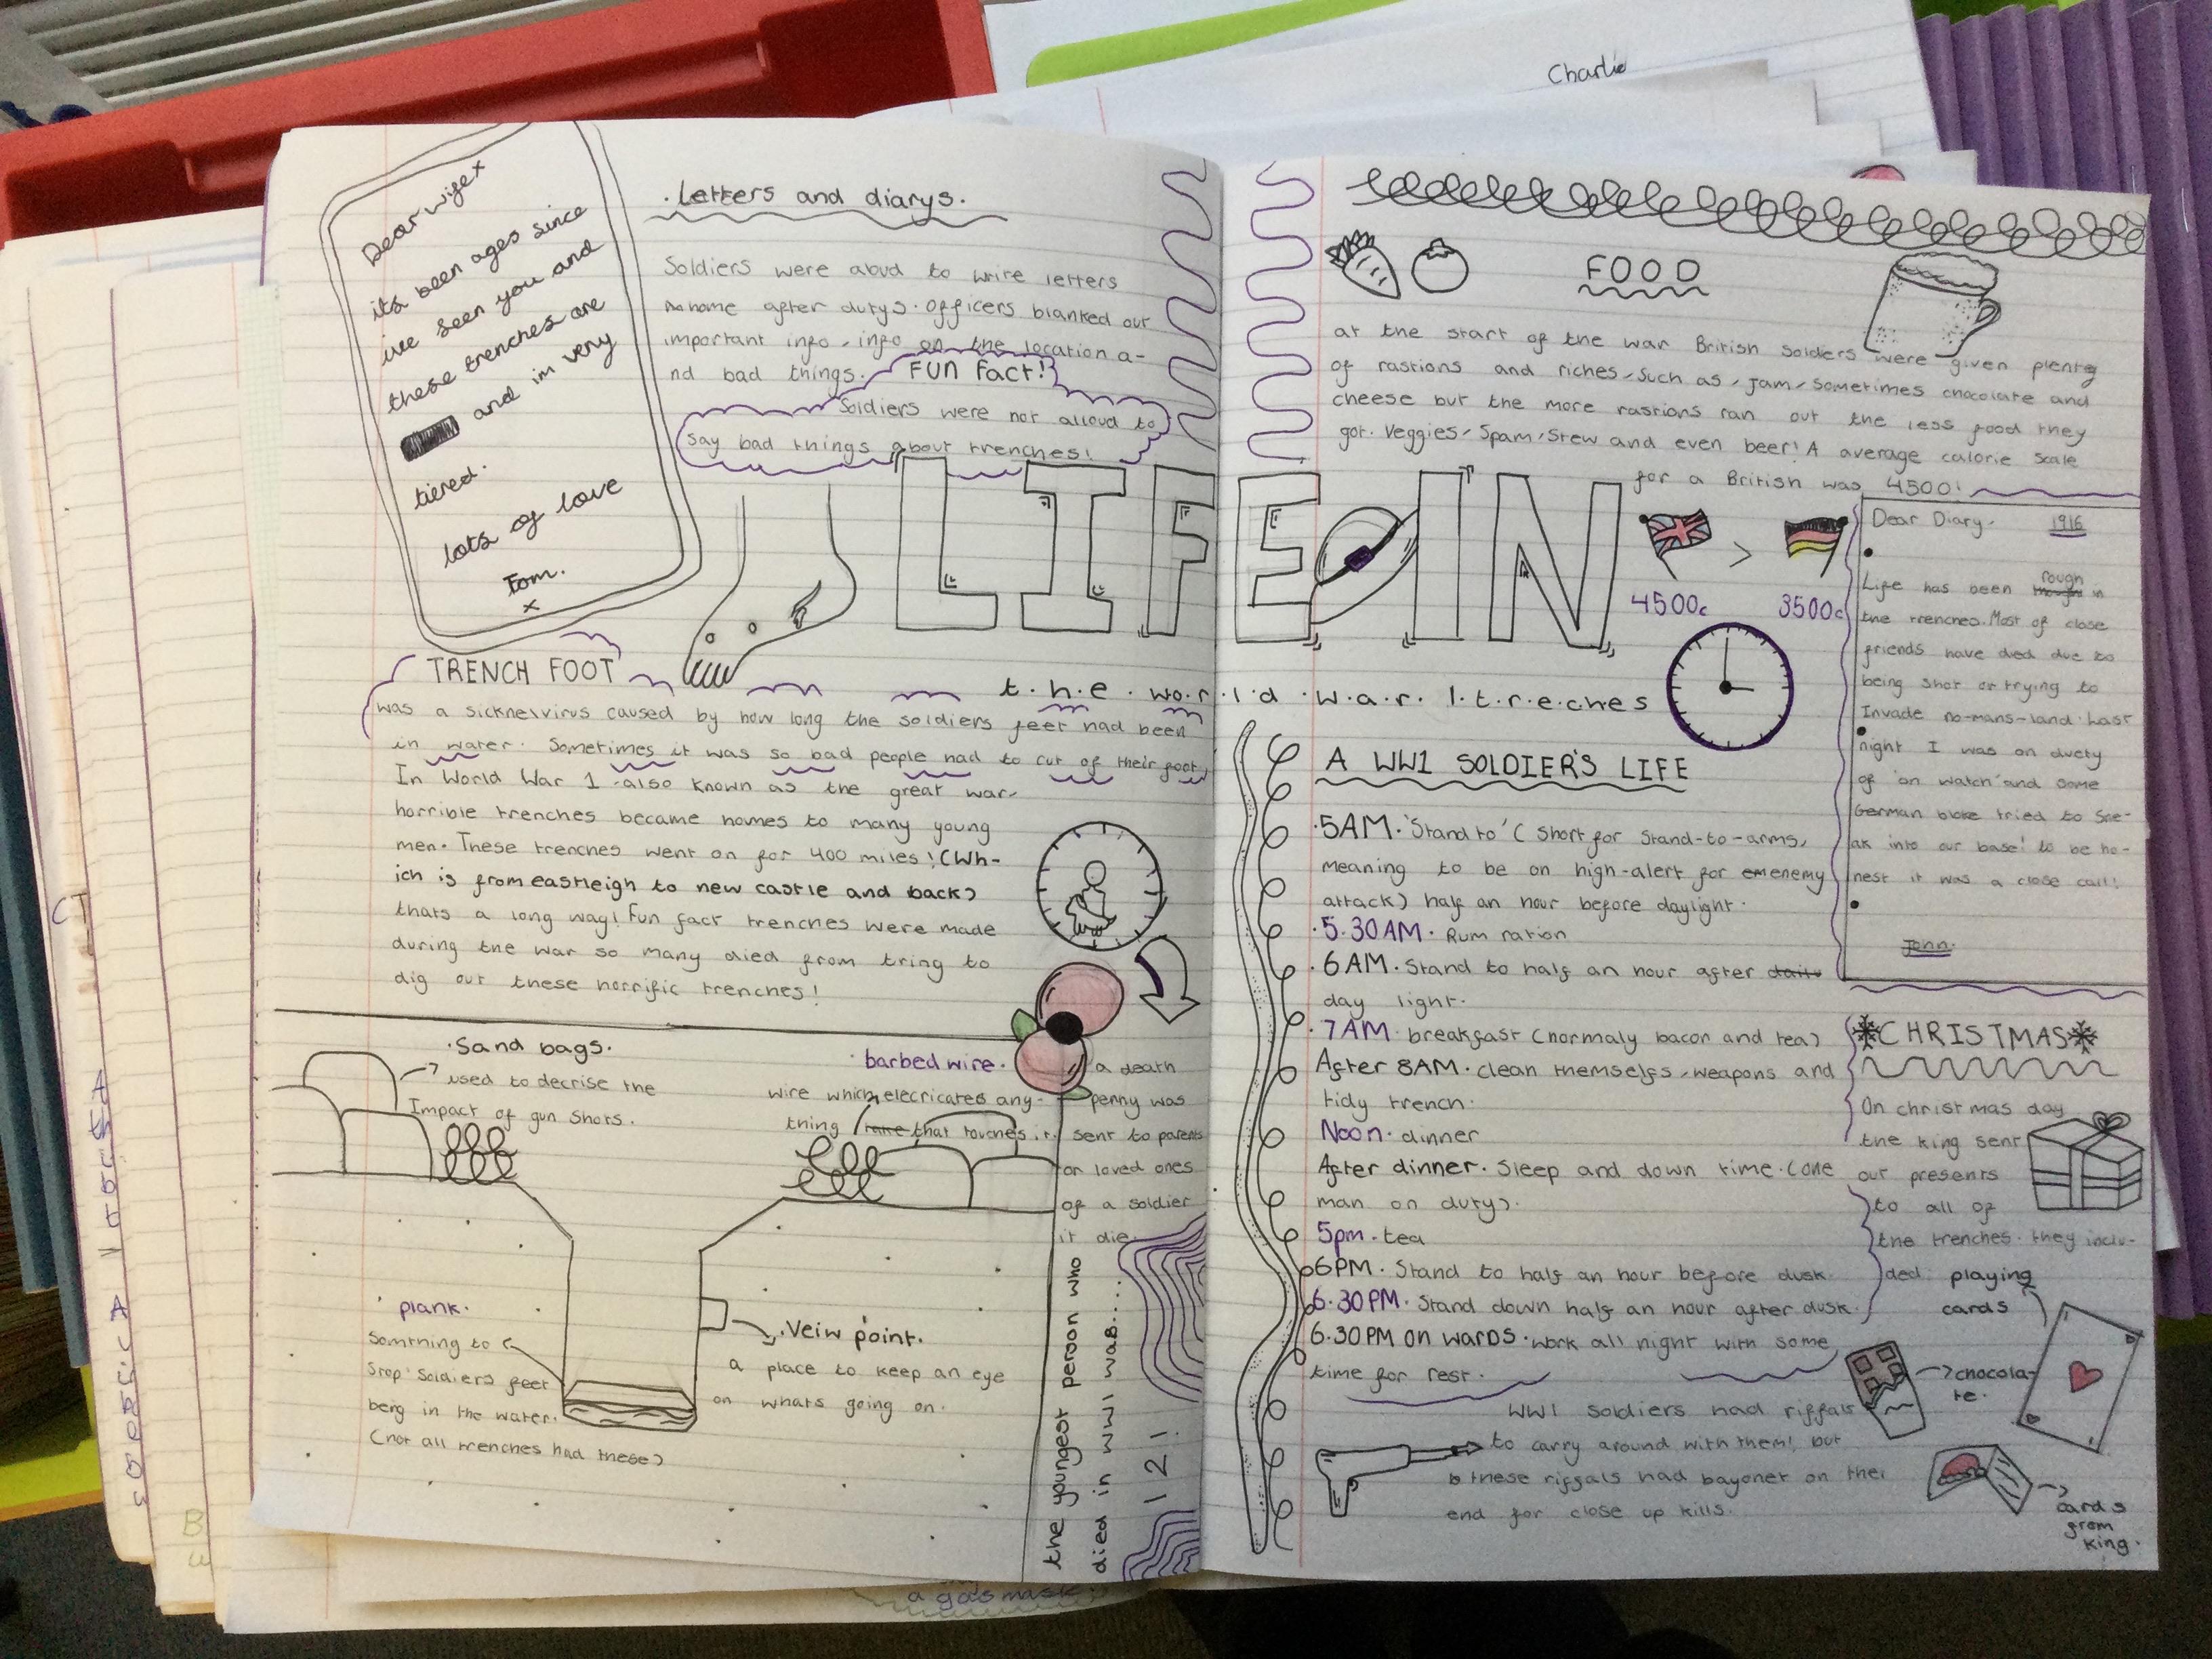 Charlie
Dear wifex
its been ages since
ive seen you and
these trenches are
and im very
tiered.
lots of love
Tom.
x
.Letters and diarys.
Soldiers were aloud to wrire letters
home after dutys. Officers blanked out
important info, info on the location a-
nd bad things.
FUN fact!
Soldiers were not alloud to
say bad things about trenches!
LIFE IN
t.h.e.wo.r.l.d.w.a.r.1.t.r.e.ches
TRENCH FOOT
was a sicknes/virus caused by how long the soldiers feet had been
in water. Sometimes it was so bad people had to cut of their foot
In World War 1 also known as the great war,
horrible trenches became homes to many young
men. These trenches went on for 400 miles! (Wh-
ich is from eastleigh to new castle and back)
thats a long way! Fun fact trenches were made
during the war so many died from tring to
dig out these horrific trenches!
.Sand bags.
used to decrise the
Impact of gun shots.
barbed wire.
wire which elecricates any-
thing that touches it.
a death
penny was
sent to parents
or loved ones
of a soldier
it die.
plank.
Somthing to
stop soldiers feet
being in the water.
(not all trenches had these)
.Veiw point.
a place to keep an eye
on whats going on.
the youngest person who
died in WW1 was....
12!
FOOD
at the start of the war British soldiers were given plenty
of rastions and riches, such as, jam, sometimes chocolate and
cheese but the more rastions ran out the less food they
got. Veggies, Spam, Stew and even beer! A average calorie scale
for a British was 4500!
>
4500c 3500c
Dear Diary. 1916
Life has been rough in
the trenches. Most of close
friends have died due to
being shot or trying to
Invade no-mans-land. Last
night I was on duety
of 'on watch' and some
German bloke tried to sne-
ak into our base! to be ho-
nest it was a close call!
John.
A WW1 SOLDIER'S LIFE
.5AM. 'Stand to' ( short for stand-to-arms,
meaning to be on high-alert for enemy
attack) half an hour before daylight.
.5.30AM. Rum ration
.6AM. Stand to half an hour after
day light.
.7AM. breakfast (normaly bacon and tea)
After 8AM. clean themselfs, weapons and
tidy trench.
Noon. dinner
After dinner. Sleep and down time. (one
man on duty).
5pm. tea
6PM. Stand to half an hour before dusk.
6.30PM. Stand down half an hour after dusk.
6.30PM ON WARDS. work all night with some
time for rest.
CHRISTMAS
On christmas day
the king sent
out presents
to all of
the trenches. they inclu-
ded playing
cards
chocola-
te.
cards
from
king.
WW1 soldiers had riffals
to carry around with them! but
these riffals had bayonet on ther
end for close up kills.
a gas mask